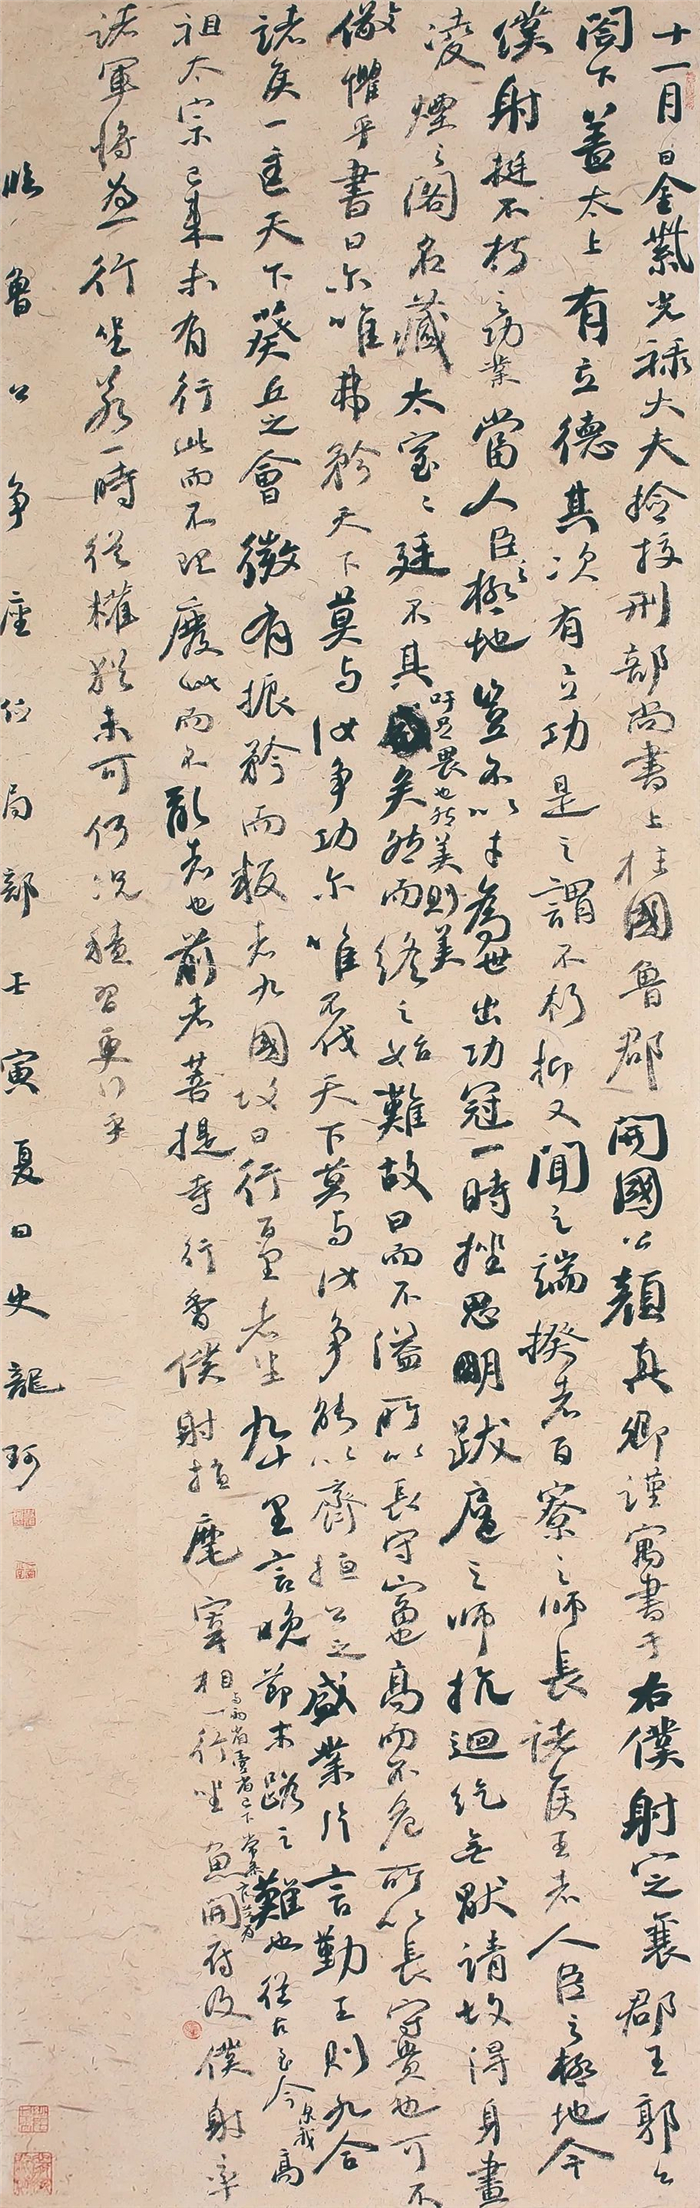 十一月日金紫光禄大夫撿挍刑部尚書上柱國魯郡開國公顔真卿謹寓書于右僕射定襄郡王郭公
閤下盖太上有立德其次有立功是之謂不朽抑又聞之端揆者百寮之師長諸侯王者人臣之極地今
僕射挺不朽之功業當人臣之極地豈不以才為世出功冠一時挫思明跋扈之師抗迴紇無猒請故得身畫
凌煙之閣名藏太室之廷
吁足畏也然美則美
矣然而終之始難故曰而不溢所以長守富也高而不危所以長守貴也可不
儆懼乎書曰尔唯弗矜天下莫与汝争功尔唯不伐天下莫与汝争能以齊桓公之盛業片言勤王則九合
諸侯一匡天下葵丘之會微有振矜而叛者九國故曰行百里者半九十里言晚節末路之難也從古至今
高祖太宗已来未有行此而不理廢此而不亂者也前者菩提寺行香僕射指麾宰相
与兩省臺省已下常参官并為
一行坐魚開府及僕射率
諸軍將為一行坐若一時從權猶未可何況積習更行乎
臨魯公争座位局部壬寅夏日史龍珂